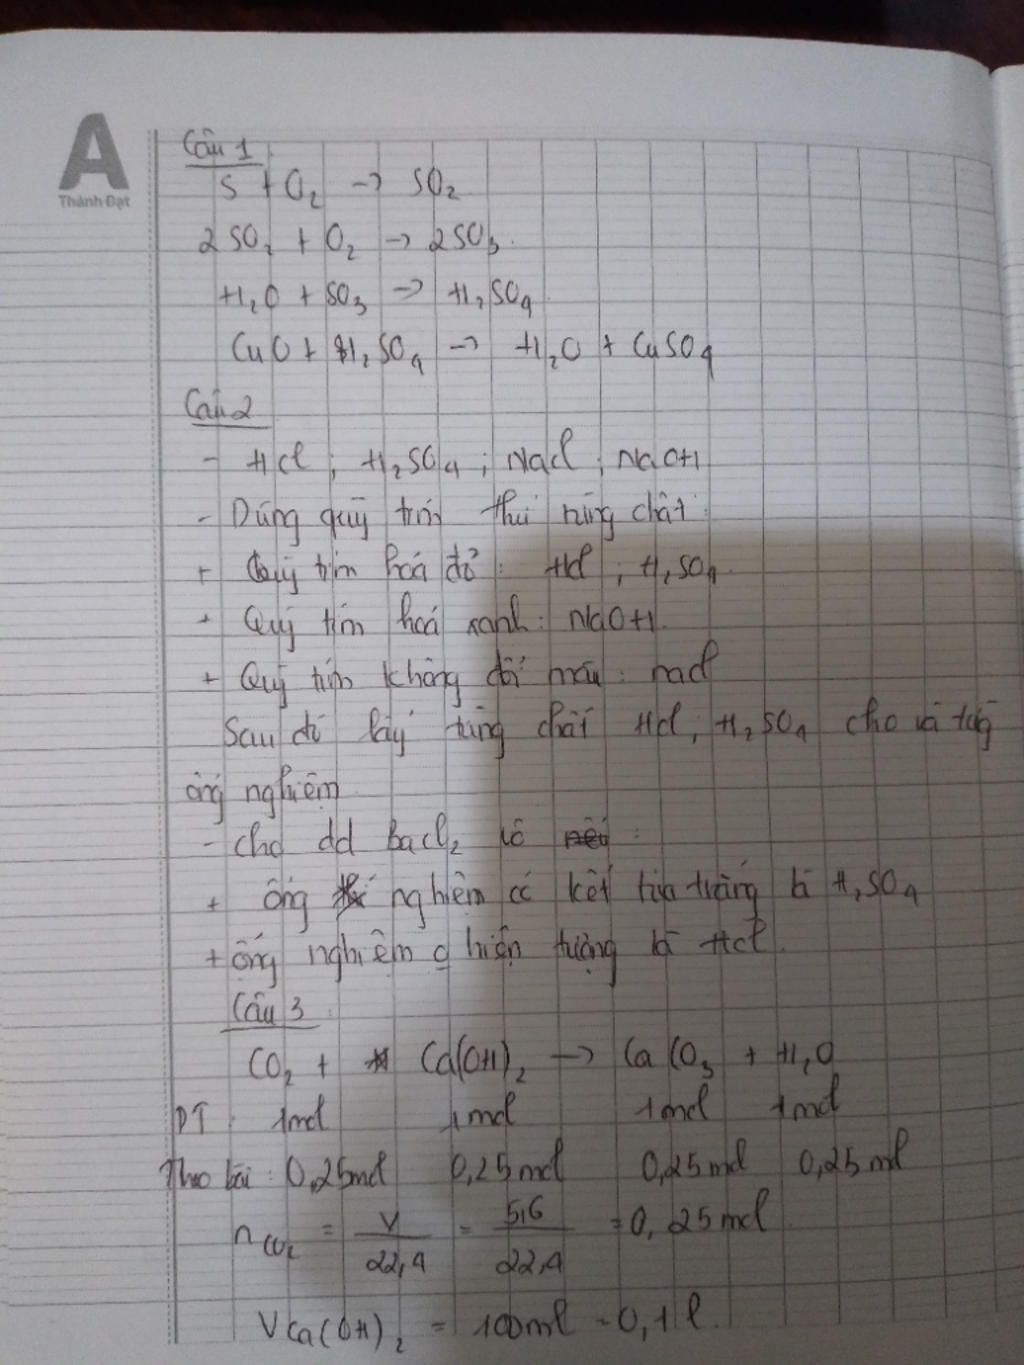 A
Thành Đạt
Câu 1
S + O₂ → SO₂
2SO₂ + O₂ → 2SO₃.
H₂O + SO₃ → H₂SO₄
CuO + H₂SO₄ → H₂O + CuSO₄
Câu 2
- HCl ; H₂SO₄ ; NaCl ; NaOH
- Dùng quỳ tím thử từng chất :
+ Quỳ tím hoá đỏ : HCl ; H₂SO₄
+ Quỳ tím hoá xanh : NaOH
+ Quỳ tím không đổi màu : NaCl
Sau đó lấy từng chất HCl, H₂SO₄ cho và từng
ống nghiệm
- Cho dd BaCl₂ :
+ ống nghiệm có kết tủa trắng là H₂SO₄
+ ống nghiệm hiện tượng là HCl.
Câu 3
CO₂ + Ca(OH)₂ → CaCO₃ + H₂O
PT : 1mol 1mol 1mol 1mol
Theo bài : 0,25mol 0,25mol 0,25mol 0,25mol
n CO₂ = V/22,4 = 5,6/22,4 = 0,25mol
V Ca(OH)₂ = 100ml = 0,1l.